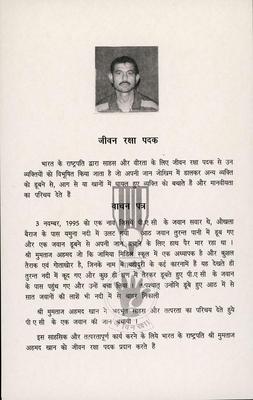 जीवन रक्षा पदक
भारत के राष्ट्रपति द्वारा साहस और वीरता के लिए जीवन रक्षा पदक से उन
व्यक्तियों को विभूषित किया जाता है जो अपनी जान जोखिम में डालकर अन्य व्यक्ति
को डूबने से, आग से या खानों में घायल हुए व्यक्ति को बचाते हैं और मानवीयता
का परिचय देते हैं
वाचन पत्र
3 नवम्बर, 1995 को एक नाव जिसमें पी.ए.सी. के जवान सवार थे, ओखला
बैराज के पास यमुना नदी में उलट गयी आठ जवान तुरन्त पानी में डूब गए
और एक जवान डूबने से अपनी जान बचाने के लिए हाथ पैर मार रहा था ।
श्री मुमताज अहमद जो कि जामिया मिडिल स्कूल में एक अध्यापक है और कुशल
तैराक एवं गोताखोर है, जिनके नाम में बहादुरी के कई कारनामे हैं यह देखते ही
तुरन्त नदी में कूद गए और कुछ ही में तैरकर डूबते हुए पी.ए.सी के जवान
के पास पहुंच गए और उन्हें बचा लिया तत्पश्चात् उन्होंने डूबे हुए आठ में से
सात जवानों की लाशें भी नदी में से बाहर निकालीं
श्री मुमताज अहमद खान ने अदभुत साहस और तत्परता का परिचय देते हुये
पी.ए.सी के एक जवान की जान बचायी ।
इस साहसिक और तत्परतापूर्ण कार्य करने के लिये भारत के राष्ट्रपति श्री मुमताज
अहमद खान को जीवन रक्षा पदक प्रदान करते हैं